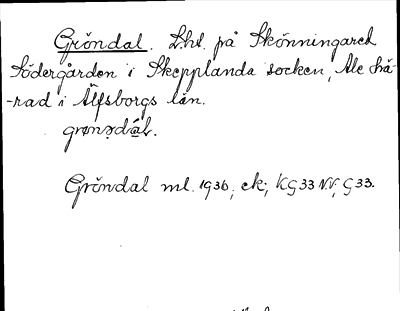 Gröndal. Lht. på Skönningared
Södergården i Skepplanda socken, Ale hä-
-rad i Älfsborgs län.
Gröndal ml. 1936, ek; KG 33 NV, G 33.